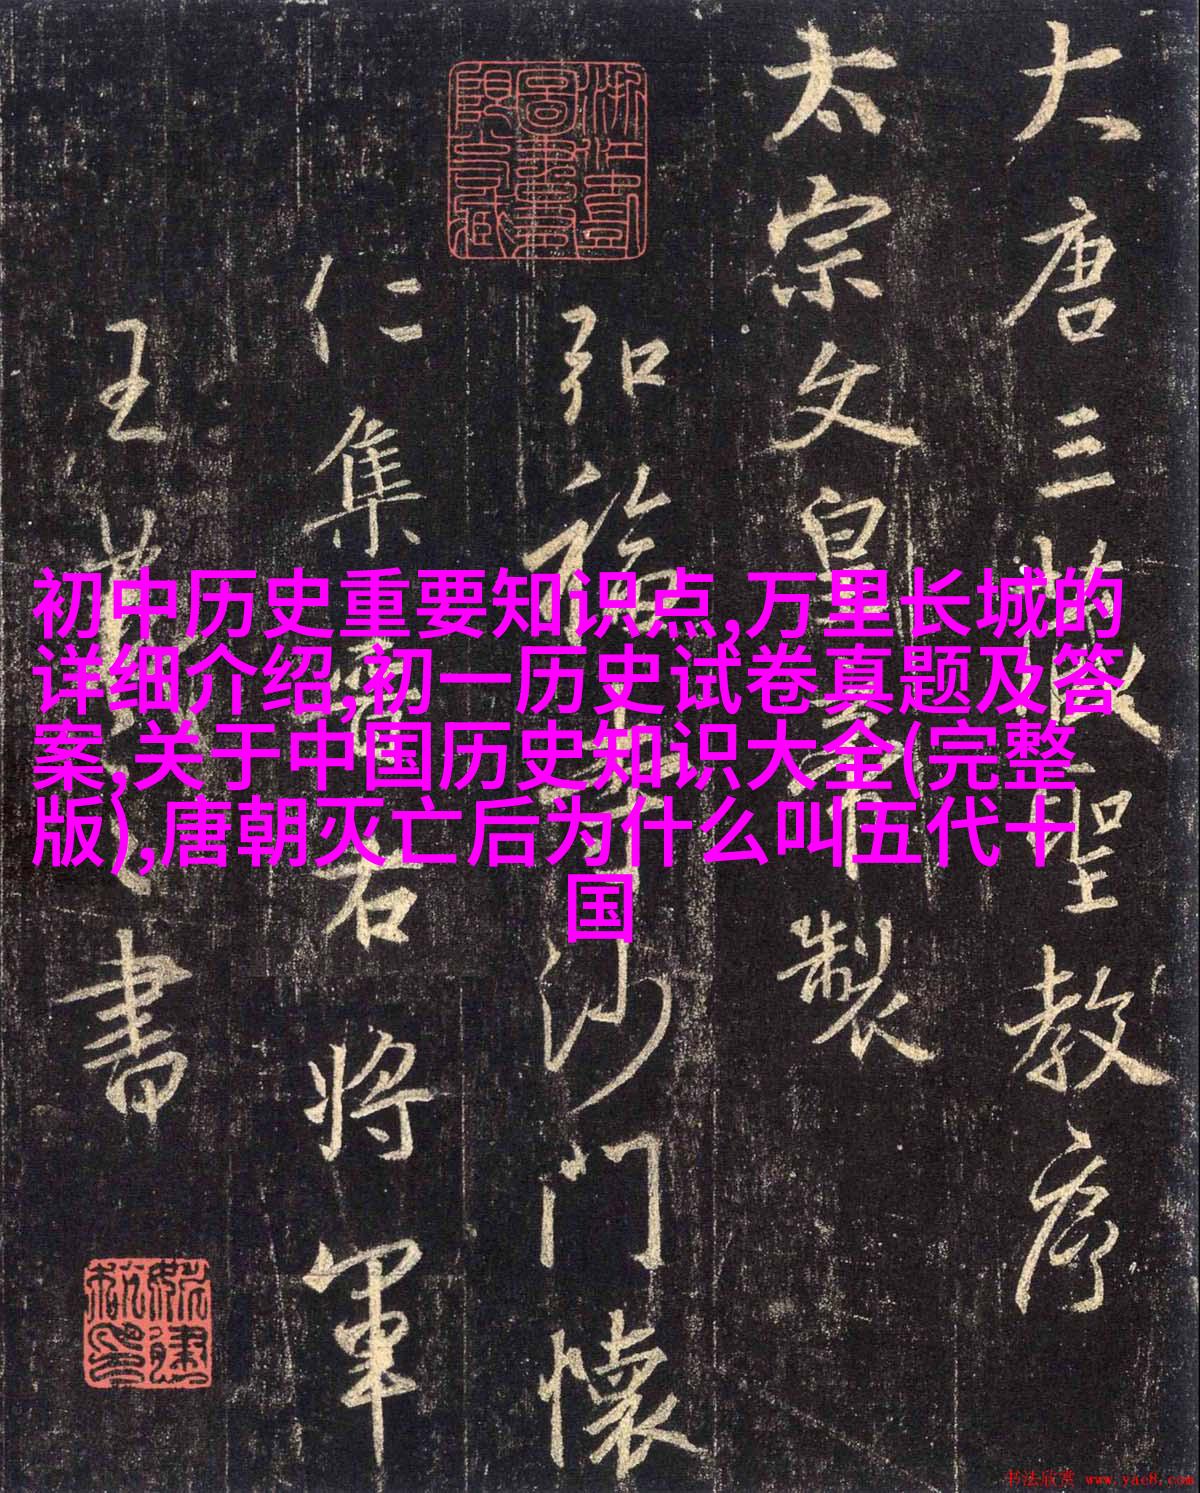 大唐三藏聖教序
太宗文皇帝製
弘福寺沙門懷
仁集晉右將軍
王羲之書
初中历史重要知识点,万里长城的
详细介绍,初一历史试卷真题及答
案,关于中国历史知识大全(完整
版),唐朝灭亡后为什么叫五代十
国
书法欣赏 www.yac8.com